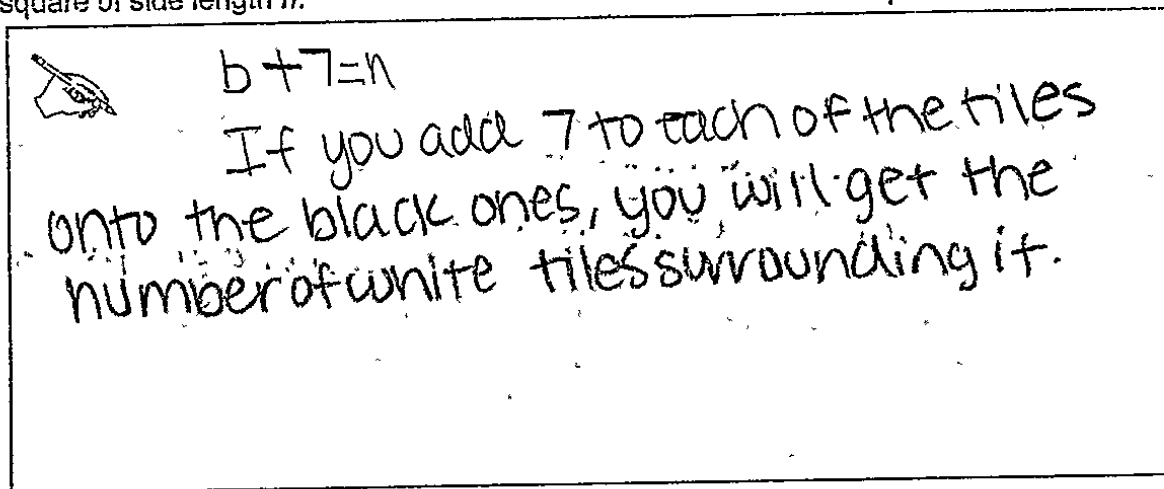 square of side length n.
b+7=n
If you add 7 to each of the tiles
onto the black ones, you will get the
number of white tiles surrounding it.